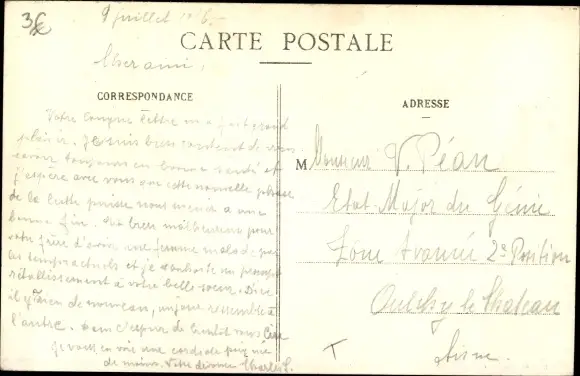 3
9 juillet 1916.
CARTE POSTALE
Cher ami,
CORRESPONDANCE
Votre longue lettre m'a fait grand
plaisir. Je suis bien content de vous
savoir toujours en bonne santé et
j'espère avec vous que cette nouvelle phase
de la lutte puisse nous mener à une
bonne fin. bien malheureux pour
votre frère d'avoir une femme malade par
les temps actuels et je souhaite un prompt
rétablissement à votre belle soeur. Ici
il y a rien de nouveau, un jour ressemble à
l'autre. bientôt vous lire
Je vous envoie une cordiale poignée
de mains. Votre Charles
ADRESSE
M Monsieur V. Péan
Etat-Major du Génie
Zone Avancée 2e Position
Oulchy le Chateau
Aisne.
T